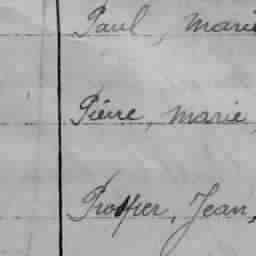 Paul, Marie
Pierre, Marie,
Prosper, Jean,